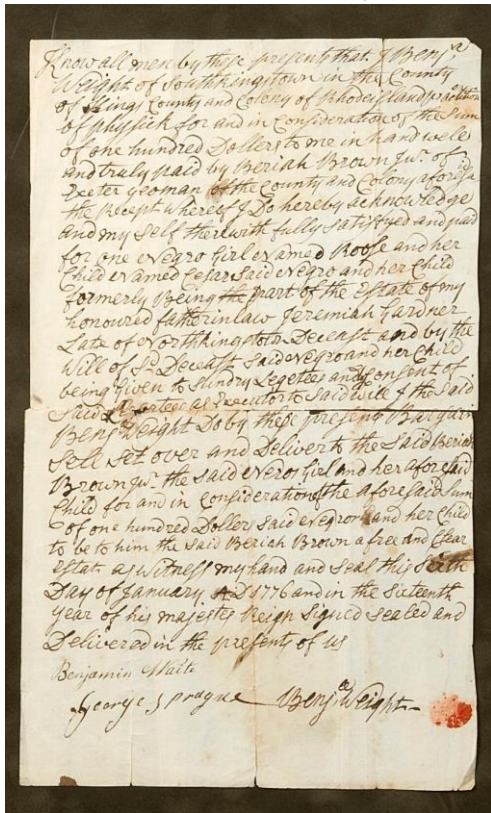 Know all men by these presents that I Benjᵃ
Weight of Southkingstown in the County
of Kings County and Colony of Rhodeisland practitioner
of physick for and in Consideration of the Sum
of one hundred Dollers to me in hand well
and truly paid by Beriah Brown Juʳ of
Exeter yeoman of the County and Colony aforesᵈ
the Recept whereof I Do hereby acknowledge
and my Self therewith fully Satisfyed and paid
for one Negro Girl Named Roose and her
Child Named Cesar Said Negro and her Child
formerly Being the part of the Estate of my
honoured father in law Jeremiah Gardner
Late of Northkingstown Deceast and by the
Will of Sᵈ Deceast Said Negro and her Child
being Given to Sundry Legetees and Consent of
Said as Executor to Said Will I the Said
Benjᵃ Weight Do by these presents Bargain
Sell Set over and Deliver to the Said Beriah
Brown Juʳ the Said Negro Girl and her aforesaid
Child for and in Consideration of the aforesaid Sum
of one hundred Doller Said Negro and her Child
to be to him the Said Beriah Brown a free and Clear
Estat as Witness my hand and Seal this Sixth
Day of January AD 1776 and in the Sixteenth
year of his majestes Reign Signed Sealed and
Delivered in the presents of us
Benjamin Waite
George Sprague Benjᵃ Weight